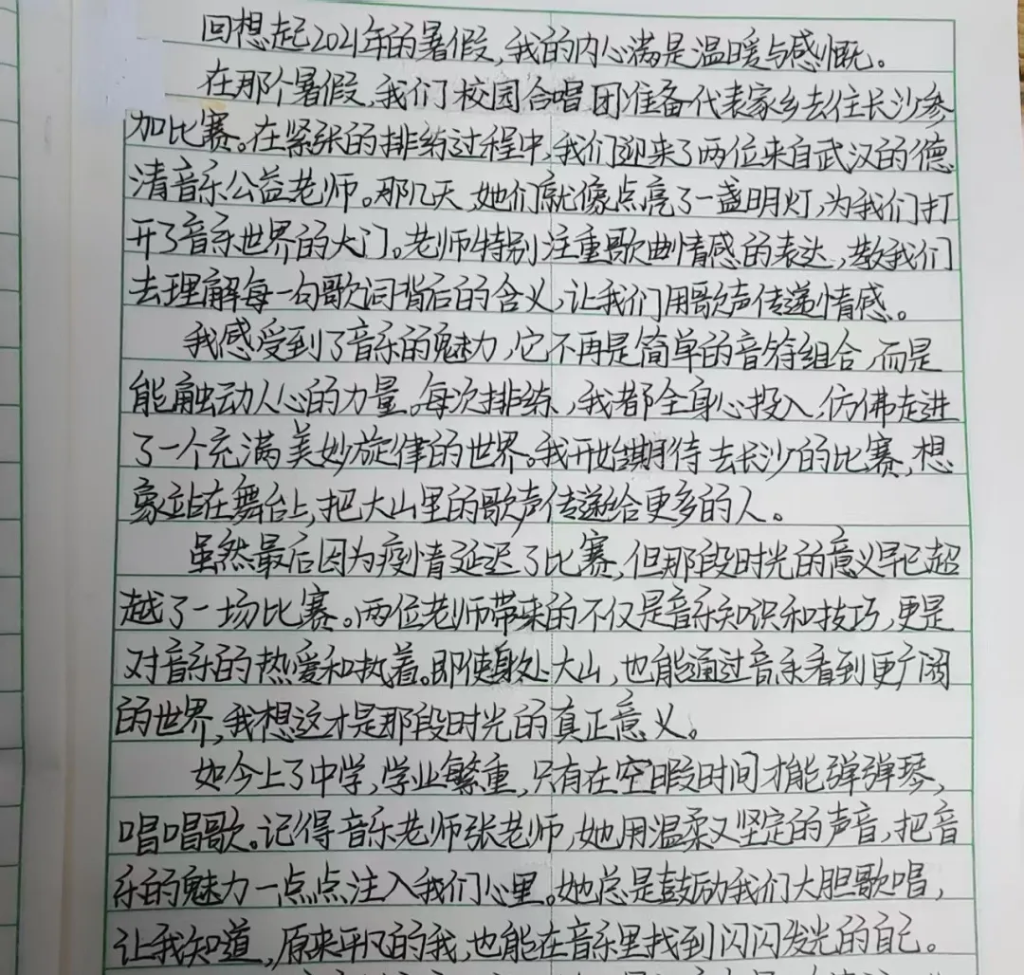 回想起2021年的暑假,我的内心满是温暖与感慨。
在那个暑假,我们校园合唱团准备代表家乡去往长沙参
加比赛。在紧张的排练过程中,我们迎来了两位来自武汉的德
清音乐公益老师。那几天,她们就像点亮了一盏明灯,为我们打
开了音乐世界的大门。老师特别注重歌曲情感的表达,教我们
去理解每一句歌词背后的含义,让我们用歌声传递情感。
我感受到了音乐的魅力,它不再是简单的音符组合,而是
能触动人心的力量。每次排练,我都全身心投入,仿佛走进
了一个充满美妙旋律的世界。我开始期待去长沙的比赛,想
象站在舞台上,把大山里的歌声传递给更多的人。
虽然最后因为疫情延迟了比赛,但那段时光的意义早已超
越了一场比赛。两位老师带来的不仅是音乐知识和技巧,更是
对音乐的热爱和执着。即使身处大山,也能通过音乐看到更广阔
的世界,我想这才是那段时光的真正意义。
如今上了中学,学业繁重,只有在空暇时间才能弹弹琴,
唱唱歌。记得音乐老师张老师,她用温柔又坚定的声音,把音
乐的魅力一点点注入我们心里。她总是鼓励我们大胆歌唱,
让我知道,原来平凡的我,也能在音乐里找到闪闪发光的自己。